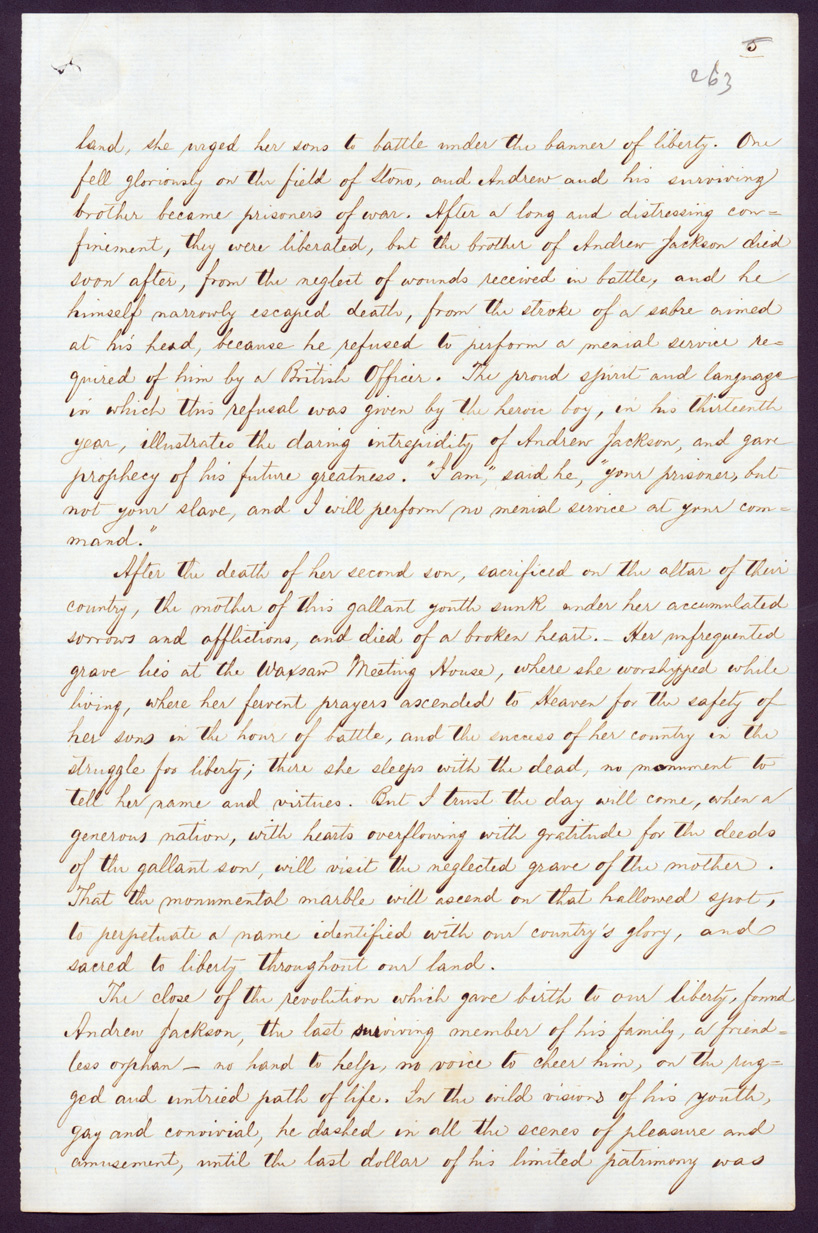 5
263
land, she urged her sons to battle under the banner of liberty. One
fell gloriously on the field of Stono, and Andrew and his surviving
brother became prisoners of war. After a long and distressing con=
finement, they were liberated, but the brother of Andrew Jackson died
soon after, from the neglect of wounds received in battle, and he
himself narrowly escaped death, from the stroke of a sabre aimed
at his head, because he refused to perform a menial service re=
quired of him by a British Officer. The proud spirit and language
in which this refusal was given by the heroic boy, in his thirteenth
year, illustrates the daring intrepidity of Andrew Jackson, and gave
prophecy of his future greatness. "I am," said he, "your prisoner, but
not your slave, and I will perform no menial service at your com=
mand."
After the death of her second son, sacrificed on the altar of their
country, the mother of this gallant youth sunk under her accumulated
sorrows and afflictions, and died of a broken heart. — Her unfrequented
grave lies at the Waxsaw Meeting House, where she worshipped while
living, where her fervent prayers ascended to Heaven for the safety of
her sons in the hour of battle, and the success of her country in the
struggle for liberty; there she sleeps with the dead, no monument to
tell her name and virtues. But I trust the day will come, when a
generous nation, with hearts overflowing with gratitude for the deeds
of the gallant son, will visit the neglected grave of the mother.
That the monumental marble will ascend on that hallowed spot,
to perpetuate a name identified with our country's glory, and
sacred to liberty throughout our land.
The close of the revolution which gave birth to our liberty, found
Andrew Jackson, the last surviving member of his family, a friend=
less orphan — no hand to help, no voice to cheer him, on the rug=
ged and untried path of life. In the wild visions of his youth,
gay and convivial, he dashed in all the scenes of pleasure and
amusement, until the last dollar of his limited patrimony was